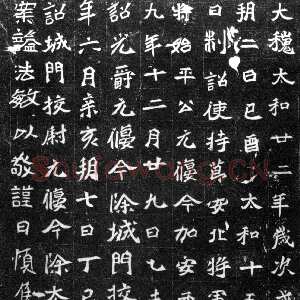 大魏太和廿二年歲次戊
朔二日己酉太和十五
日制詔使持節安北將軍
將始平公元偃今加安西
九年十二月廿九日乙未
詔光爵元偃今除城門校
年六月辛亥朔七日丁巳
詔城門校尉元偃今除太
案謚法敏以敬謹曰順侯